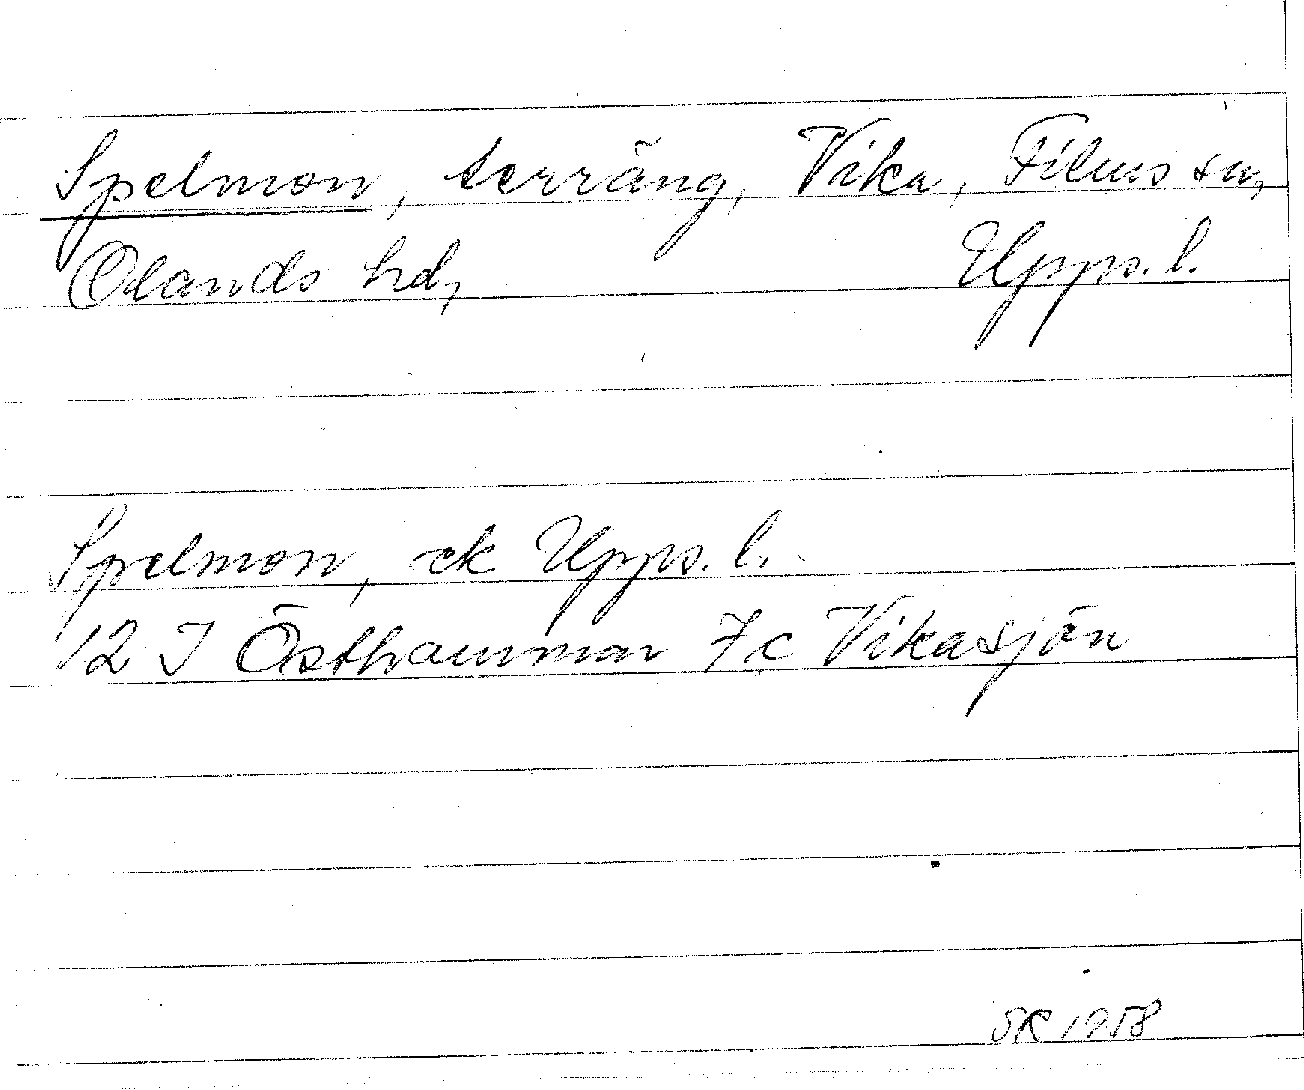 Spelmon, terräng, Vika, Films sn,
Olands hd, Upps. l.
Spelmon, ek Upps. l.
12 I Östhammar 7 c Vikasjön
SK 1958